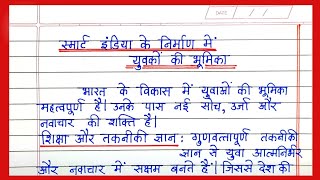 स्मार्ट इंडिया के निर्माण में
युवकों की भूमिका
भारत के विकास में युवाओं की भूमिका
महत्वपूर्ण है। उनके पास नई सोच, उर्जा और
नवाचार की शक्ति है।
शिक्षा और तकनीकी ज्ञान : गुणवत्तापूर्ण तकनीकी
ज्ञान से युवा आत्मनिर्भर
और नवाचार में सक्षम बनते है। जिससे देश की